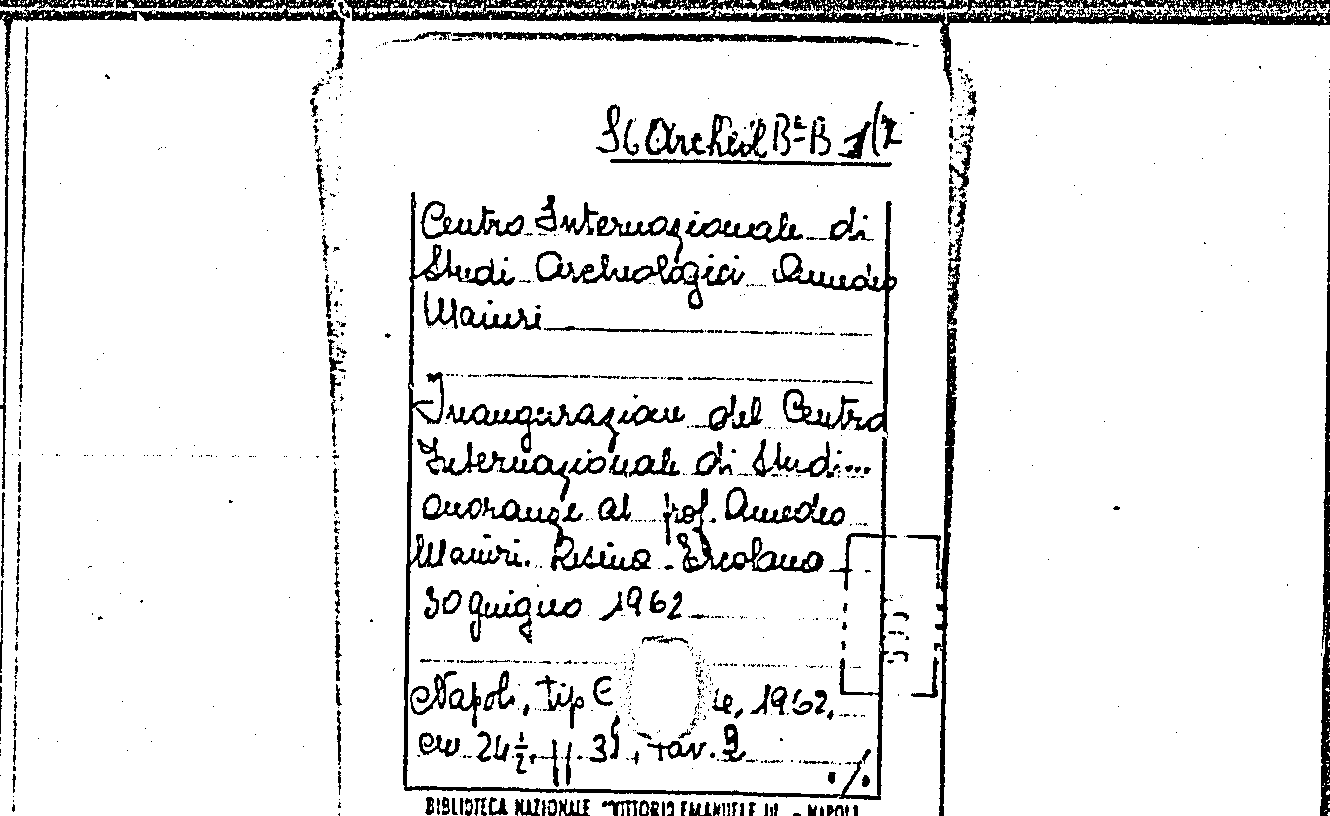 Centro Internazionale di
Studi Archeologici Amedeo
Maiuri
Inaugurazione del Centro
Internazionale di Studi...
onoranze al prof. Amedeo
Maiuri. Resina - Ercolano
30 giugno 1962
Napoli, tip 1962.
cm 24 1/2, pp. 35, tav. 9
./.
BIBLIOTECA NAZIONALE "VITTORIO EMANUELE III" - NAPOLI